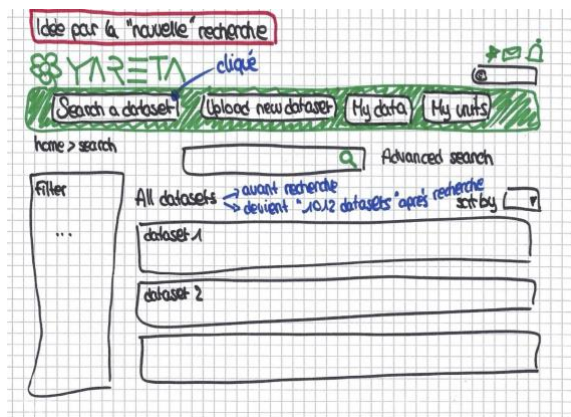 Idée par la "nouvelle" recherche
YARETA
cliqué
Search a dataset
Upload new dataset
My data
My units
home > search
Advanced search
filter
...
All datasets
→ avant recherche
→ devient "1012 datasets" après recherche
sort by
dataset 1
dataset 2